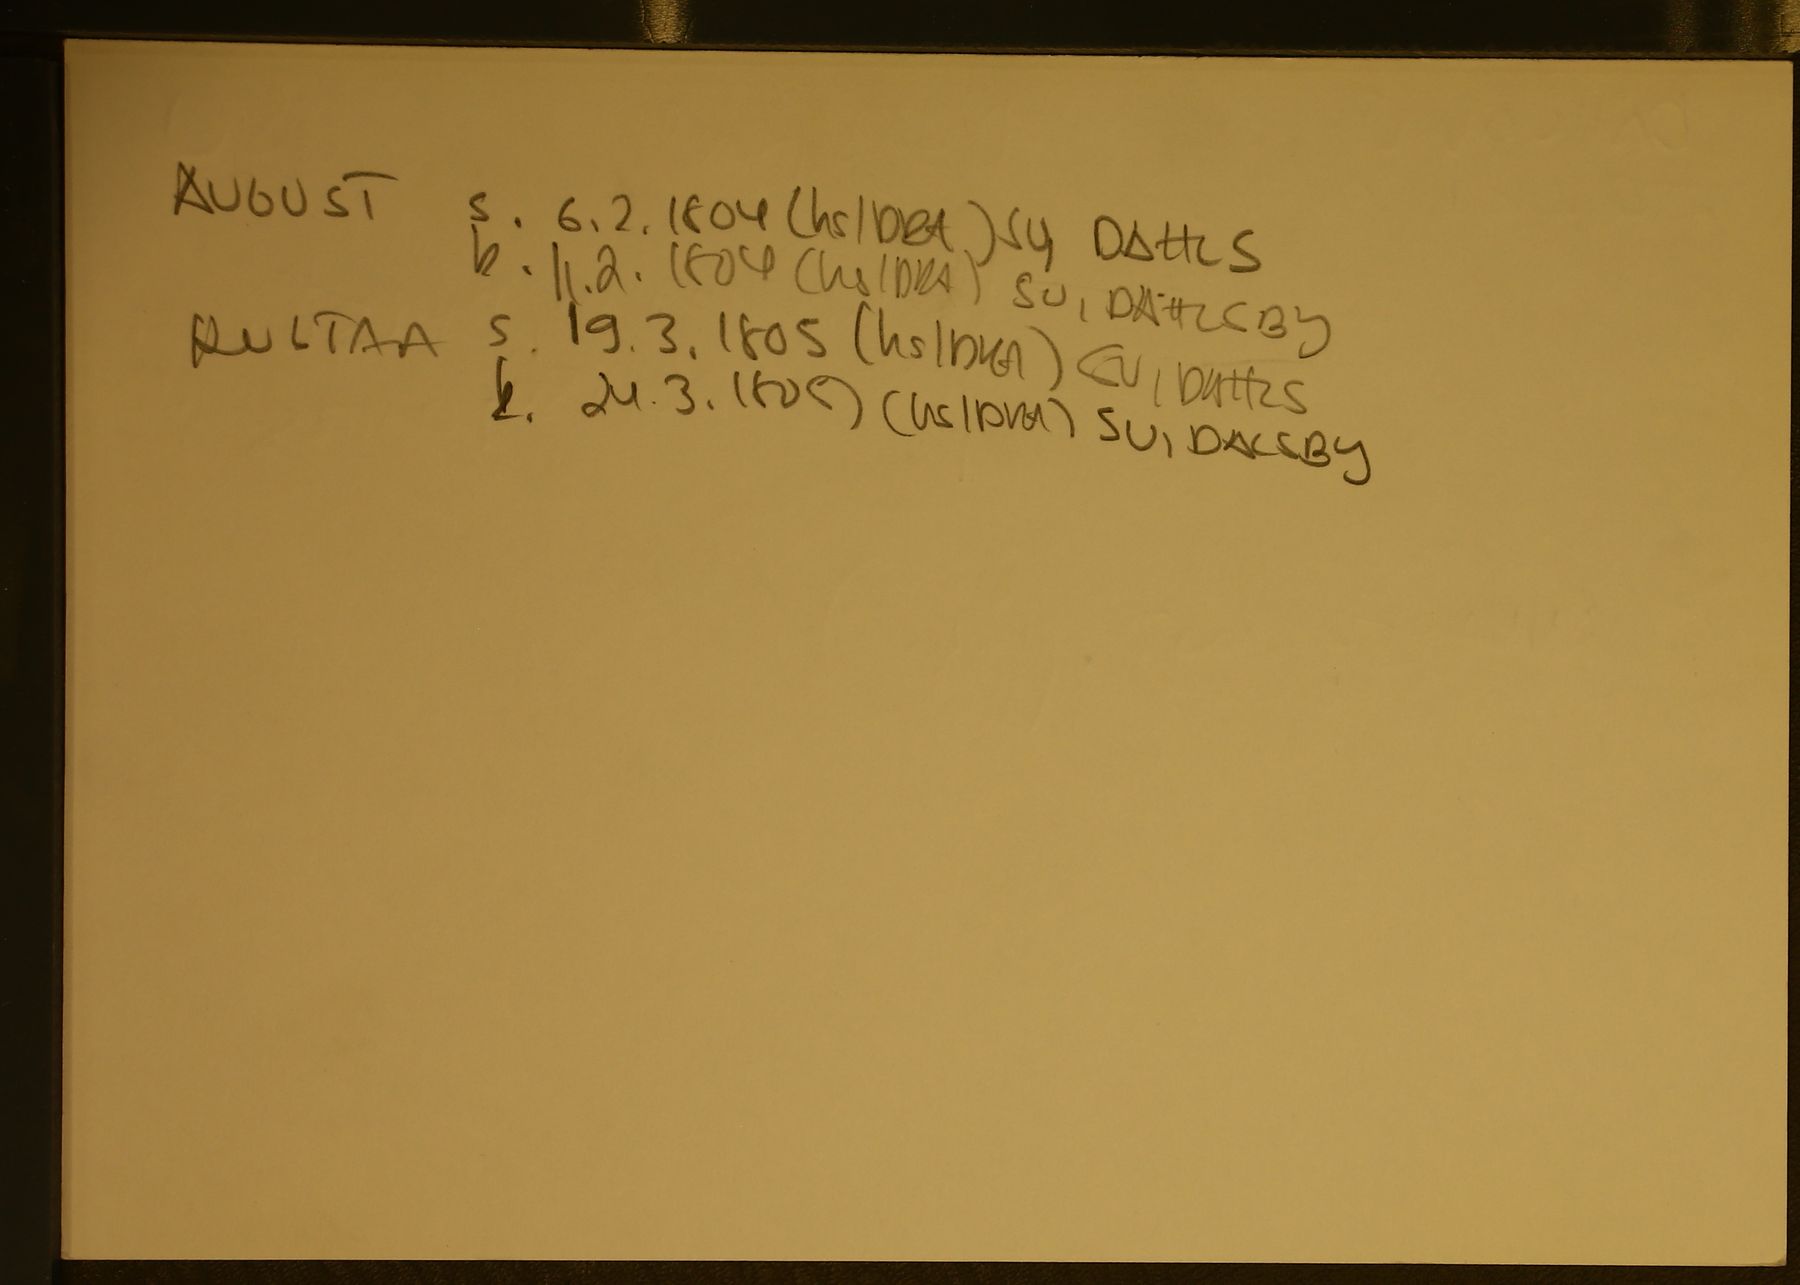 AUGUST s. 6.2.1804 (hs/DRA) SU, DAHLS
k. 11.2.1804 (hs/DRA) SU, DAHLSBY
s. 19.3.1805 (hs/DRA) SU, DAHLS
k. 24.3.1805 (hs/DRA) SU, DALSBY